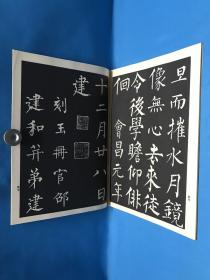 旦而摧水月鏡
像無心去來徒
令後學瞻仰俳
佪 會昌元年
十二月廿八日
建
刻玉冊官邵
建和并弟建